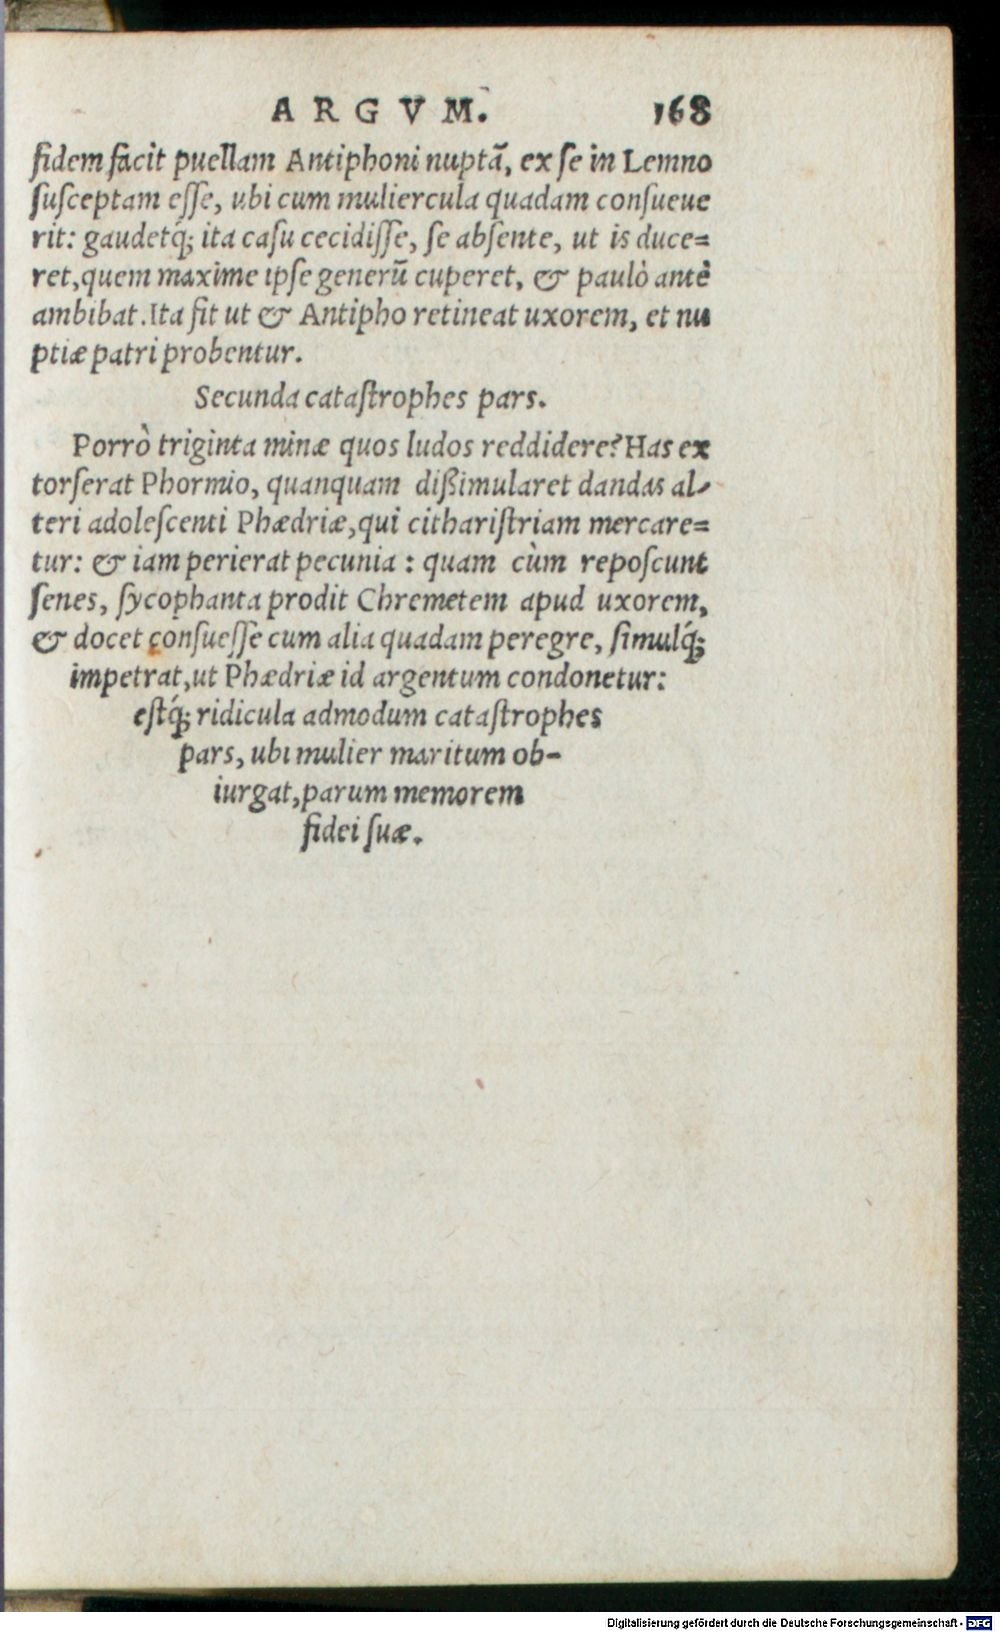 ARGVM. 168
fidem facit puellam Antiphoni nuptā, ex se in Lemno
susceptam esse, ubi cum muliercula quadam consueue
rit: gaudetq́; ita casu cecidisse, se absente, ut is duce=
ret, quem maxime ipse generū cuperet, & paulò antè
ambibat. Ita fit ut & Antipho retineat uxorem, et nu
ptiæ patri probentur.
Secunda catastrophes pars.
Porrò triginta minæ quos ludos reddidere? Has ex
torserat Phormio, quanquam dißimularet dandas al-
teri adolescenti Phædriæ, qui citharistriam mercare=
tur: & iam perierat pecunia: quam cùm reposcunt
senes, sycophanta prodit Chremetem apud uxorem,
& docet consuesse cum alia quadam peregre, simulq́;
impetrat, ut Phædriæ id argentum condonetur:
estq́; ridicula admodum catastrophes
pars, ubi mulier maritum ob-
iurgat, parum memorem
fidei suæ.
Digitalisierung gefördert durch die Deutsche Forschungsgemeinschaft - DFG